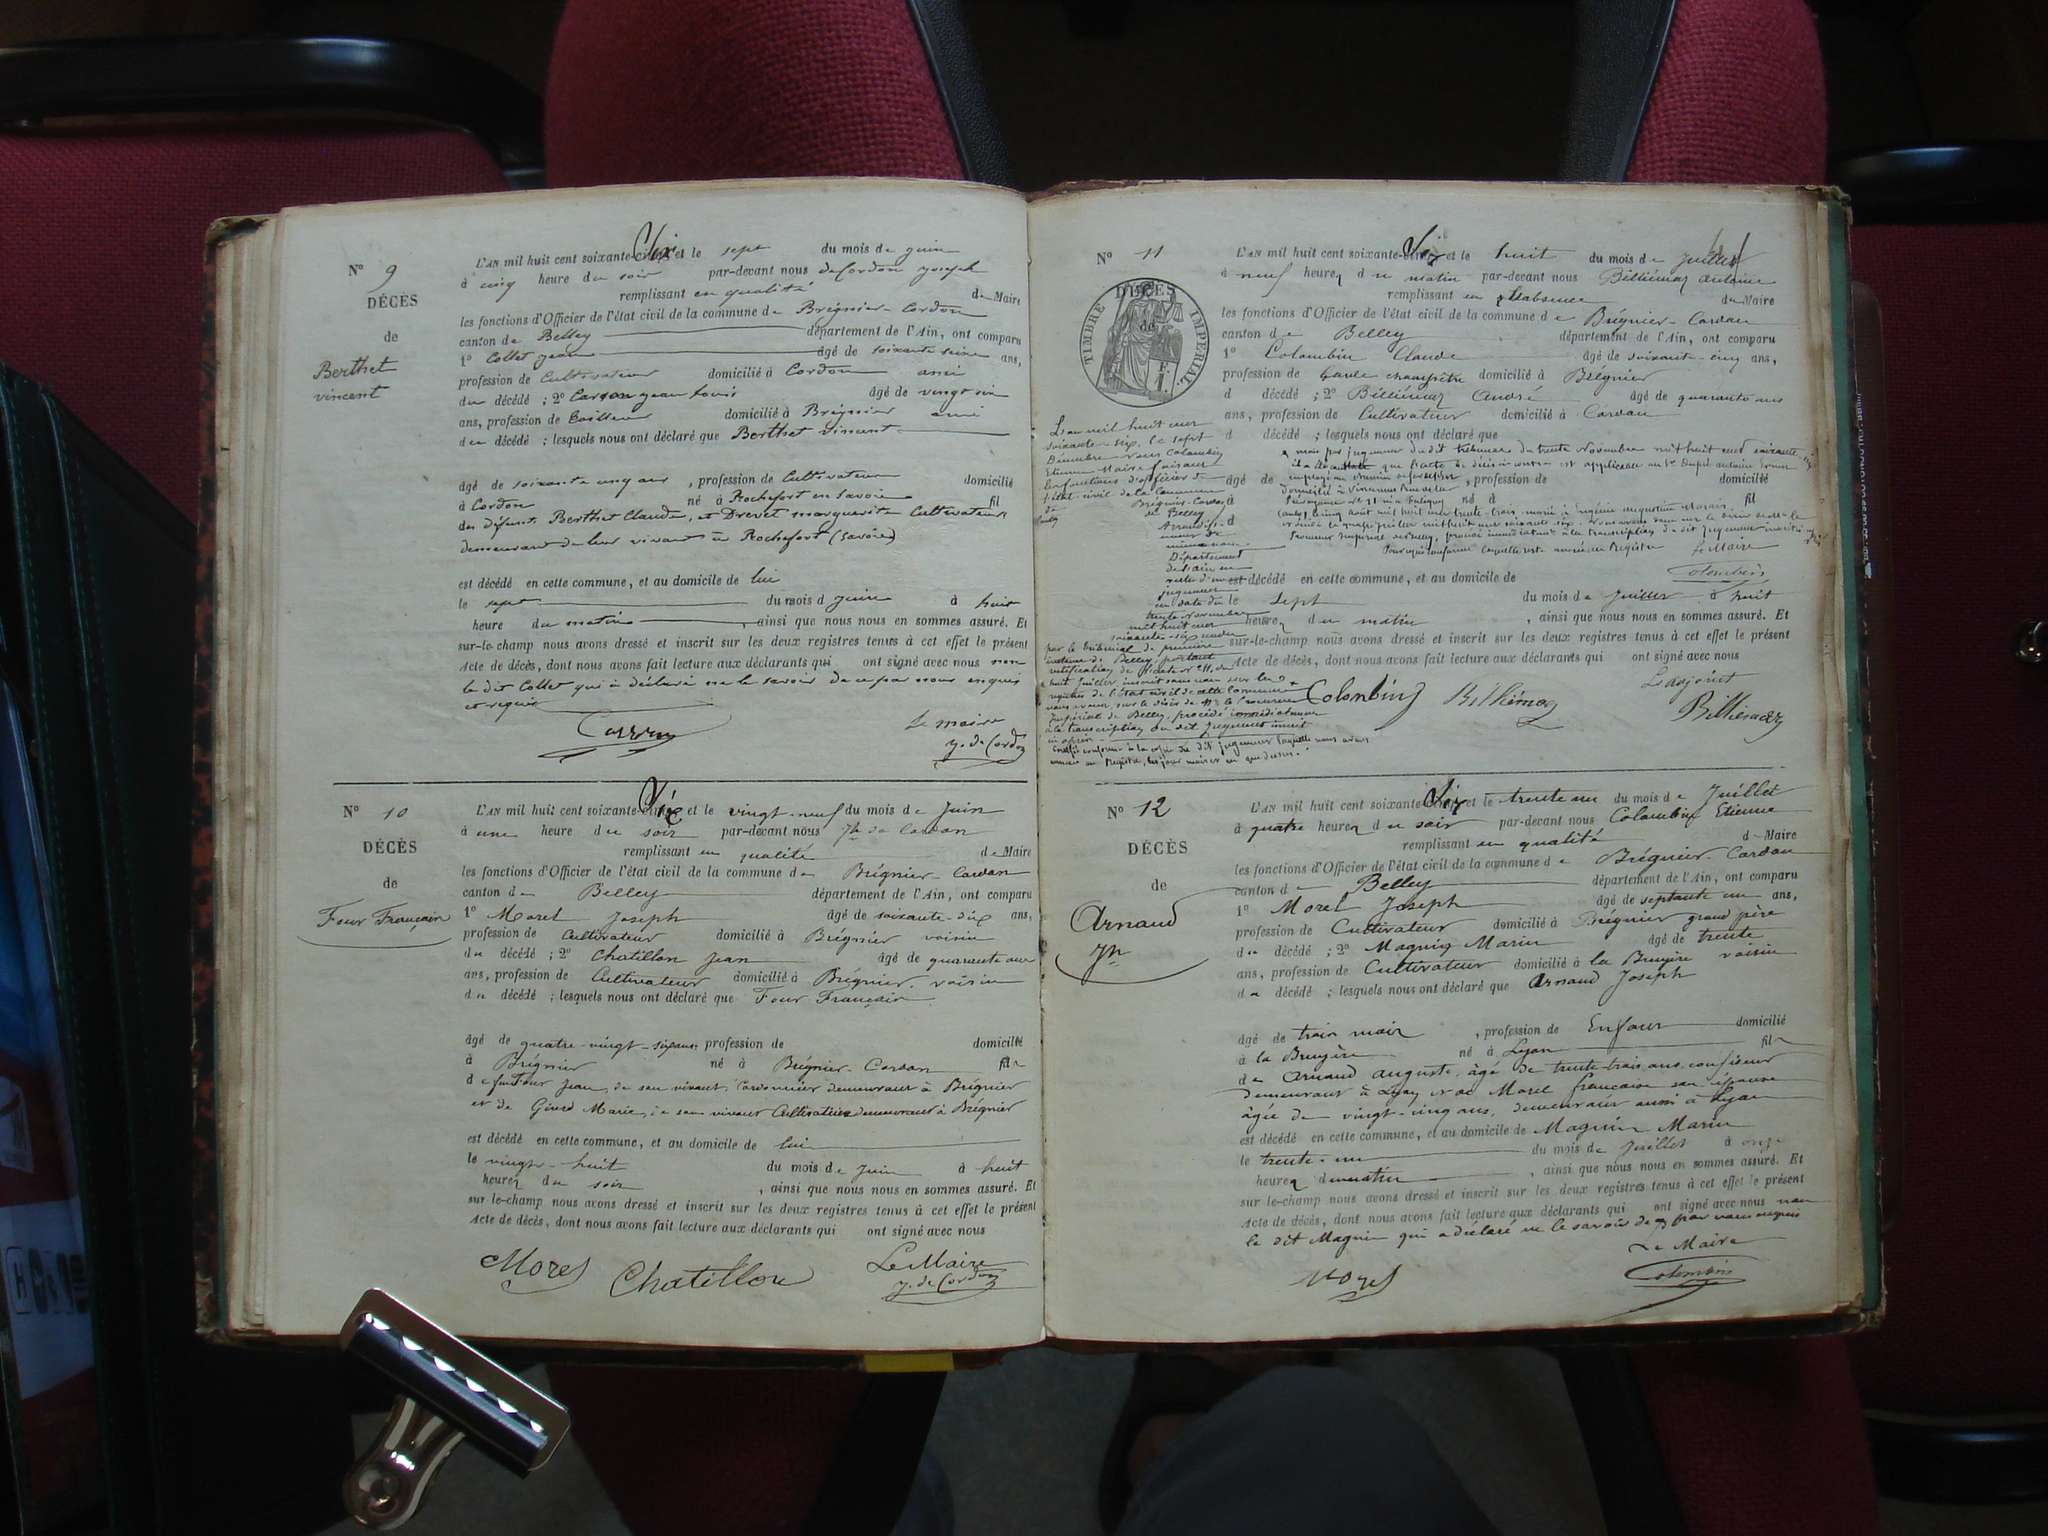 N° 9
DÉCÈS
de
Berthet
vincent
L'AN mil huit cent soixante-Six et le sept du mois de juin
à cinq heure du soir par-devant nous de Cordon joseph
remplissant en qualité de Maire
les fonctions d'Officier de l'état civil de la commune de Brégnier-Cordon
canton de Belley département de l'Ain, ont comparu
1° Collet jean âgé de soixante seize ans,
profession de Cultivateur domicilié à Cordon ami
du décédé ; 2° Carron jean louis âgé de vingt six
ans, profession de tailleur domicilié à Brégnier ami
du décédé ; lesquels nous ont déclaré que Berthet vincent
âgé de soixante cinq ans , profession de Cultivateur domicilié
à Cordon né à Rochefort en Savoie fil
des défunts Berthet Claude, et Drevet marguerite Cultivateurs
demeurant de leur vivant à Rochefort (Savoie)
est décédé en cette commune, et au domicile de lui
le sept du mois d juin à huit
heure du matin , ainsi que nous nous en sommes assuré. Et
sur-le-champ nous avons dressé et inscrit sur les deux registres tenus à cet effet le présent
Acte de décès, dont nous avons fait lecture aux déclarants qui ont signé avec nous non
le dit Collet qui à déclaré ne le savoir de ce par nous enquis
et requis
Carron
Le maire
j. de Cordon
N° 10
DÉCÈS
de
Four Français
L'AN mil huit cent soixante-Six et le vingt-neuf du mois de Juin
à une heure du soir par-devant nous Jh de Cordon
remplissant en qualité de Maire
les fonctions d'Officier de l'état civil de la commune de Brégnier-Cordon
canton de Belley département de l'Ain, ont comparu
1° Morel Joseph âgé de soixante-dix ans,
profession de Cultivateur domicilié à Brégnier voisin
du décédé ; 2° Chatillon Jean âgé de quarante
ans, profession de Cultivateur domicilié à Brégnier voisin
du décédé ; lesquels nous ont déclaré que Four Français
âgé de quatre-vingt-six ans profession de domicilié
à Brégnier né à Brégnier-Cordon fils
de feu Four Jean, de son vivant Cordonnier demeurant à Brégnier
et de Girerd Marie, de son vivant Cultivatrice demeurant à Brégnier
est décédé en cette commune, et au domicile de lui
le vingt-huit du mois de Juin à huit
heures du soir , ainsi que nous nous en sommes assuré. Et
sur le-champ nous avons dressé et inscrit sur les deux registres tenus à cet effet le présent
Acte de décès, dont nous avons fait lecture aux déclarants qui ont signé avec nous
Morel Chatillon
Le Maire
j. de Cordon
N° 11
DÉCÈS
de
TIMBRE IMPÉRIAL
L'AN mil huit cent soixante-Six et le huit du mois de juillet
à neuf heures du matin par-devant nous Billiémaz antoine
remplissant en l'absence du Maire
les fonctions d'Officier de l'état civil de la commune de Brégnier-Cordon
canton de Belley département de l'Ain, ont comparu
1° Colombin Claude âgé de soixante-cinq ans,
profession de Garde champêtre domicilié à Brégnier
d décédé ; 2° Billiémaz André âgé de quarante ans
ans, profession de Cultivateur domicilié à Cordon
d décédé ; lesquels nous ont déclaré que
L'an mil huit cent
soixante-six, le sept
Décembre nous Colombin
Etienne Maire faisant
les fonctions d'officier de
l'état-civil de la Commune
de Brégnier-Cordon
de Belley
Département
de l'ain
jugement
en date du
trente Novembre
mil huit cent
soixante-six rendu
par le tribunal de première
instance de Belley, portant
rectification de l'acte n° 11, du
huit Juillet inscrit sans nom sur les
registres de l'état civil de cette Commune
Impérial de Belley, procédé immédiatement
à la transcription du dit jugement
par jugement du dit tribunal du trente Novembre mil huit cent soixante six
que l'acte de décès est applicable au Sr Dupit antoine
âgé de employé au chemin de fer , profession de domicilié
né à fil
août mil huit cent trente-trois, marié à
Le Maire
Colombin
est décédé en cette commune, et au domicile de
le Sept du mois de juillet à huit
heures du matin , ainsi que nous nous en sommes assuré. Et
sur-le-champ nous avons dressé et inscrit sur les deux registres tenus à cet effet le présent
Acte de décès, dont nous avons fait lecture aux déclarants qui ont signé avec nous
Colombin Billiémaz
L'adjoint
Billiémaz
N° 12
DÉCÈS
de
Arnaud
Jh
L'AN mil huit cent soixante-Six et le trente un du mois de Juillet
à quatre heures du soir par-devant nous Colombin Etienne
remplissant en qualité de Maire
les fonctions d'Officier de l'état civil de la commune de Brégnier-Cordon
canton de Belley département de l'Ain, ont comparu
1° Morel Joseph âgé de septante un ans,
profession de Cultivateur domicilié à Brégnier grand père
du décédé ; 2° Magnin Marin âgé de trente
ans, profession de Cultivateur domicilié à la Bruyère voisin
du décédé ; lesquels nous ont déclaré que Arnaud Joseph
âgé de trois mois , profession de Enfant domicilié
à la Bruyère né à Lyon fils
de Arnaud Auguste, âgé de trente-trois ans, confiseur
demeurant à Lyon et de Morel françoise son épouse
âgée de vingt-cinq ans, demeurant aussi à Lyon
est décédé en cette commune, et au domicile de Magnin Marin
le trente-un du mois de Juillet à onze
heures du matin , ainsi que nous nous en sommes assuré. Et
sur le-champ nous avons dressé et inscrit sur les deux registres tenus à cet effet le présent
Acte de décès, dont nous avons fait lecture aux déclarants qui ont signé avec nous non
le dit Magnin qui a déclaré ne le savoir de ce par nous enquis
Le Maire
Morel
Colombin